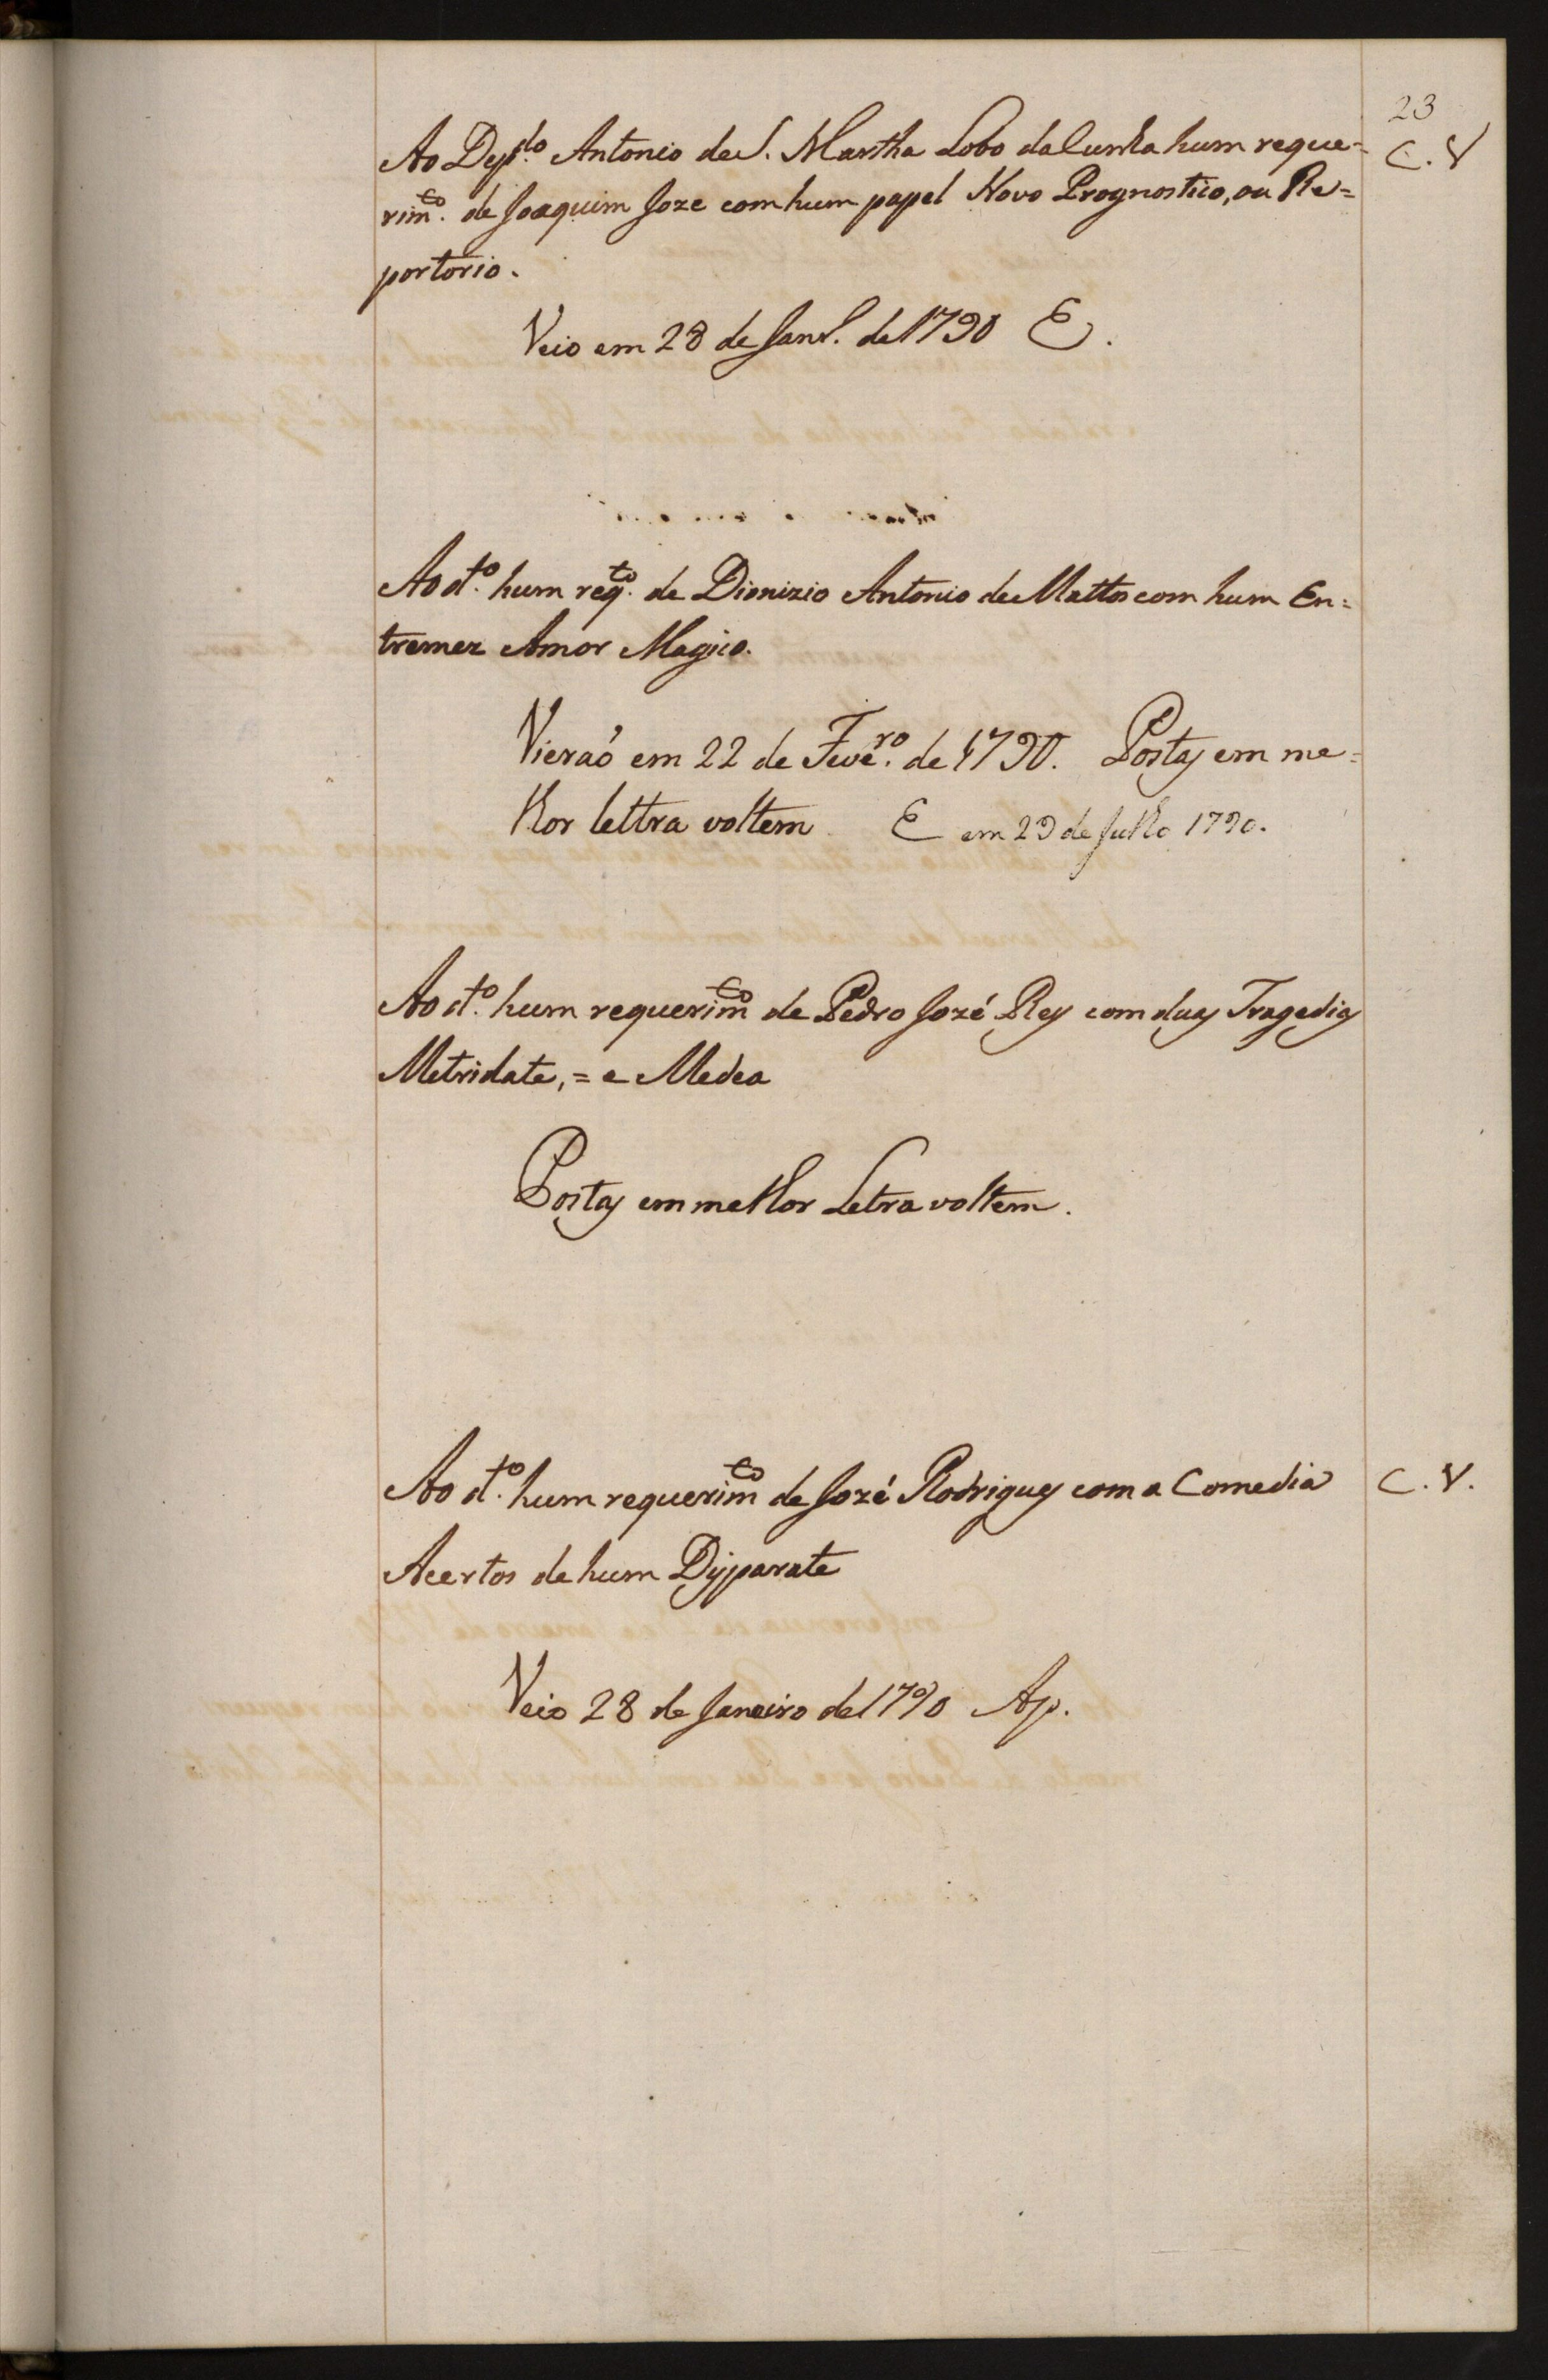 23
Ao Dep.do Antonio de S. Martha Lobo da Cunha hum reque=
C. V
rim.to de Joaquim Joze com hum papel Novo Prognostico, ou Re=
portorio.
Veio em 28 de Janr. de 1790 E.
Ao d.o hum req.to de Dionizio Antonio de Mattos com hum En=
tremez Amor Magico.
Vieraõ em 22 de Feve.ro de 1790. Postas em me=
lhor lettra voltem E em 29 de Julho 1790.
Ao d.o hum requerim.to de Pedro Jozé Rey com duas Tragedias
Metridate, = e Medea
Postas em melhor Letra voltem.
Ao d.o hum requerim.to de Jozé Rodrigues com a Comedia
C. V.
Acertos de hum Disparate
Veio 28 de Janeiro de 1790 Ap.